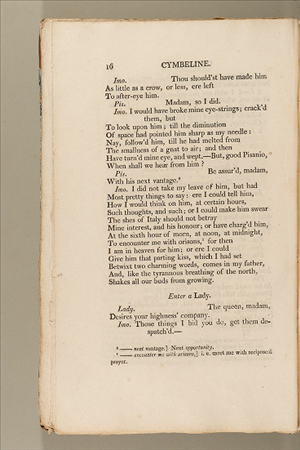 16 CYMBELINE.
Imo. Thou should'st have made him
As little as a crow, or less, ere left
To after-eye him.
Pis. Madam, so I did.
Imo. I would have broke mine eye-strings; crack'd
them, but
To look upon him; till the diminution
Of space had pointed him sharp as my needle:
Nay, follow'd him, till he had melted from
The smallness of a gnat to air; and then
Have turn'd mine eye, and wept.—But, good Pisanio,
When shall we hear from him?
Pis. Be assur'd, madam,
With his next vantage.⁸
Imo. I did not take my leave of him, but had
Most pretty things to say: ere I could tell him,
How I would think on him, at certain hours,
Such thoughts, and such; or I could make him swear
The shes of Italy should not betray
Mine interest, and his honour; or have charg'd him,
At the sixth hour of morn, at noon, at midnight,
To encounter me with orisons,⁹ for then
I am in heaven for him; or ere I could
Give him that parting kiss, which I had set
Betwixt two charming words, comes in my father,
And, like the tyrannous breathing of the north,
Shakes all our buds from growing.
Enter a Lady.
Lady. The queen, madam,
Desires your highness' company.
Imo. Those things I bid you do, get them de-
spatch'd.—
⁸ —— next vantage.] Next opportunity.
⁹ —— encounter me with orisons,] i. e. meet me with reciprocal
prayer.